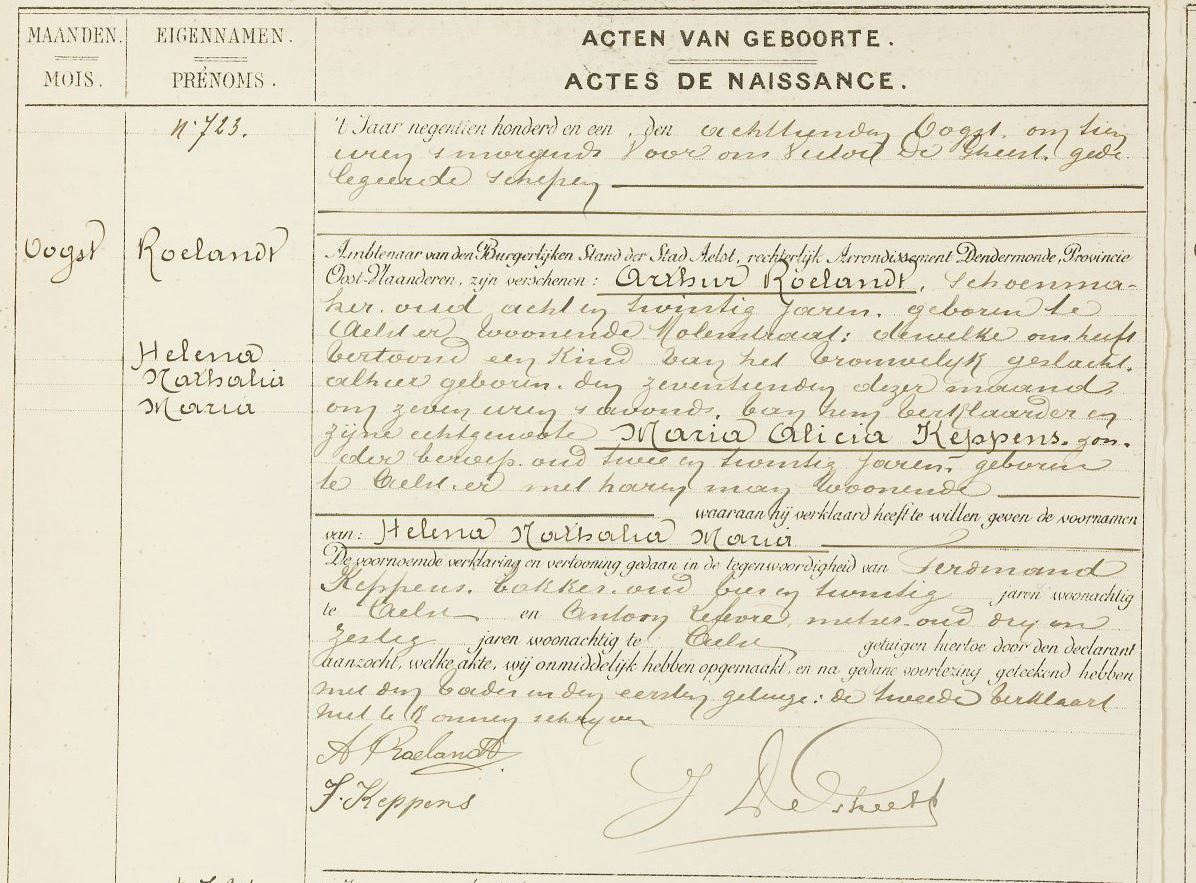 MAANDEN.
MOIS.
EIGENNAMEN.
PRÉNOMS.
ACTEN VAN GEBOORTE.
ACTES DE NAISSANCE.
n° 723.
Oogst
Roelandt
Helena
Nathalia
Maria
't Jaar negentien honderd en een, den achttienden Oogst, om tien
uren 's morgends Voor ons Victor De Gheest, gede-
legeerde schepen
Ambtenaar van den Burgerlijken Stand der Stad Aelst, rechterlijk Arrondissement Dendermonde, Provincie
Oost-Vlaanderen, zijn verschenen: Arthur Roelandt, Schoenma-
ker, oud acht en twintig jaren, geboren te
Aelst er woonende Molenstraat; dewelke ons heeft
vertoond een Kind van het vrouwelyk geslacht,
alhier geboren, den zeventienden dezer maand,
om zeven uren 's avonds, van hem verklaarder en
zijne echtgenoote Maria Alicia Keppens, zon-
der beroep, oud twee en twintig jaren, geboren
te Aelst, er met haren man woonende
waaraan hij verklaard heeft te willen geven de voornamen
van: Helena Nathalia Maria
De voornoemde verklaring en vertooning gedaan in de tegenwoordigheid van Ferdinand
Keppens, bakker, oud vier en twintig jaren woonachtig
te Aelst en Antoon Lefevre, metser, oud dry en
zestig jaren woonachtig te Aelst getuigen hiertoe door den declarant
aanzocht, welke akte, wij onmiddelijk hebben opgemaakt, en na gedane voorlezing geteekend hebben
met den vader en den eersten getuige: de tweede verklaart
niet te konnen schryven
A Roelandt
F. Keppens
De Gheest